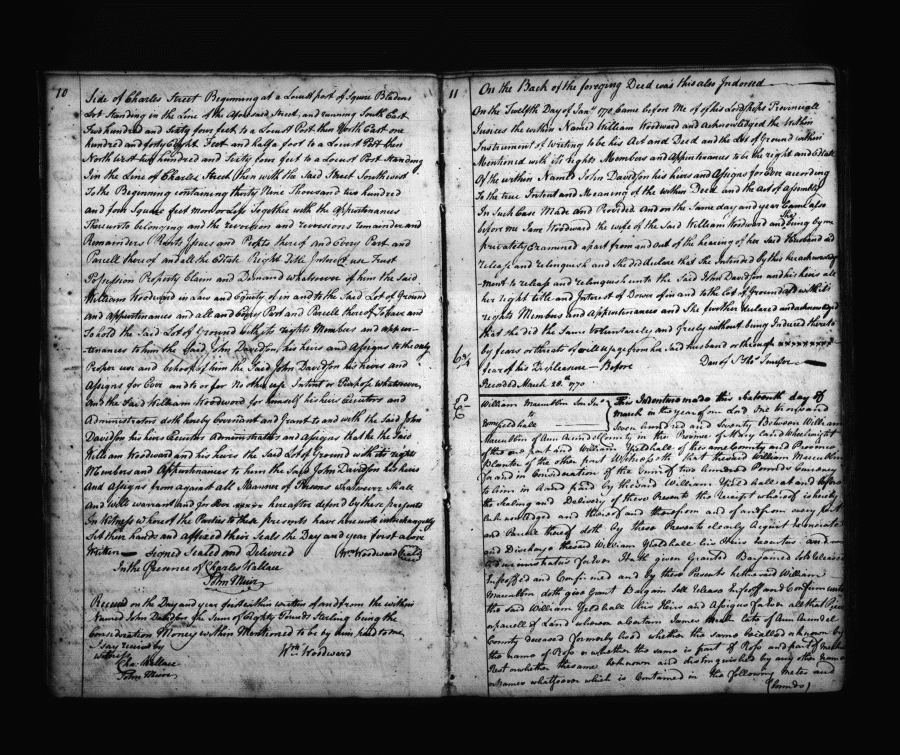 10
Side of Charles Street Beginning at a Locust post of Squire Bladens
Lot Standing in the Line of the Aforesaid Street, and running South East
Two hundred and Sixty four feet to a Locust Post then North East one
hundred and forty Eight Feet and half a foot to a Locust Post then
North West two hundred and Sixty four feet to a Locust Post Standing
In the Line of Charles Street then with the Said Street South west
To the Beginning containing thirty Nine Thousand two hundred
and four Square feet more or Less Together with the Appurtenances
Thereunto belonging and the revertion and reversions remainder and
Remainders Rents Issues and Profits thereof and Every Part and
Parcell thereof and all the Estate Right Title Interest use Trust
Possession Property Claim and Demand whatsoever of him the Said
William Woodward in Law and Equity of in and to the Said Lot of Ground
and appurtenances and all and Every Part and Parcell thereof To have and
To hold the Said Lot of Ground with its rights Members and appur-
tenances to him the Said John Davidson, his heirs and Assigns to the only
Proper use and behoof of him the Said John Davidson his heirs and
Assigns for Ever and to or for No other use Intent or Purpose whatsoever
And the Said William Woodward for himself his heirs Executors and
Administrators doth hereby Covenant and Grant to and with the Said John
Davidson his heirs Executors Administrators and Assigns that he the Said
William Woodward and his heirs the Said Lot of Ground with its rights
Members and Appurtenances to him the Said John Davidson his heirs
And Assigns from against all Manner of Persons whatsoever Shall
And Will warrant and for Ever xxxxx hereafter defend by these presents
In Witness whereof the Parties to these presents have hereunto interchangeably
Set their hands and affixed their Seals the Day and year first above
Written — Signed Sealed and Delivered Wm Woodward (Seal)
In the Presence of Charles Wallace
John Muir
Received on the Day and year first within written of and from the within
Named John Davidson the Sum of Eighty Pounds Sterling being the
Consideration Money within Mentioned to be by him paid to me,
I say received by
Witness Wm Woodward
Cha. Wallace
John Muir
11
On the Back of the foregoing Deed was this also Indorsed
On the Twelfth Day of Jany 1770 Came before Me of his Lordships Provinciall
Justices the within Named William Woodward and Acknowledged the Within
Instrument of Writing to be his Act and Deed and the Lot of Ground within
Mentioned with its rights Members and Appurtenances to be the right and Estate
Of the within Named John Davidson his heirs and Assigns for Ever according
To the true Intent and Meaning of the within Deed and the Act of Assembly
In Such Case Made and Provided and on the Same day and year Came also
before me Jane Woodward the wife of the Said William Woodward and She being by me
privately Examined apart from and out of the hearing of her said Husband did
release and relinquish and She did declare that She Intended by this her acknowledge-
ment to release and relinquish unto the Said John Davidson and his heirs all
her right title and Interest of Dower of in and to the Lot of Ground with its
rights Members and Appurtenances and She further declared and acknowledged
that she did the Same voluntarily and freely without being Induced thereto
by fears or threats of ill usage from her Said husband or through xxxxxxxx
fear of his Displeasure — Before Dan of St Thos Jenifer —
Recorded March 20th 1770
William Maccubbin Indre
to
Wm Yieldhall
This Indenture made this Sixteenth day of
March in the year of our Lord One thousand
Seven hundred and Seventy Between William
Maccubbin of Ann Arundel County in the Province of Maryland Wheelwright
of the one part and William Yieldhall of the same County and Province
Planter of the other part Witnesseth that the said William Maccubbin
for and in Consideration of the Sum of two hundred Pounds Currency
to him in hand paid by the said William Yieldhall at and before
the Sealing and Delivery of these Presents the Receipt whereof is hereby
Acknowledged and thereof and therefrom and of and from every part
and Parcell thereof doth by these Presents clearly Acquit Exonerate
and Discharge the said William Yieldhall his Heirs Executors and
Administrators forever Hath given Granted Bargained Sold Released
Enfeoffed and Confirmed and by these Presents he the said William
Maccubbin doth give Grant Bargain Sell Release Enfeoff and Confirm unto
the said William Yieldhall his Heirs and Assigns forever all that Piece
or parcell of Land whereon a Certain James late of Ann Arundel
County deceased formerly lived whether the same be called or known by
the name of Ross or whether the same is part of Ross and part of
Nest or whether the same be known and distinguished by any other Name
or Names whatsoever which is Contained in the following Metes and
(Bounds)